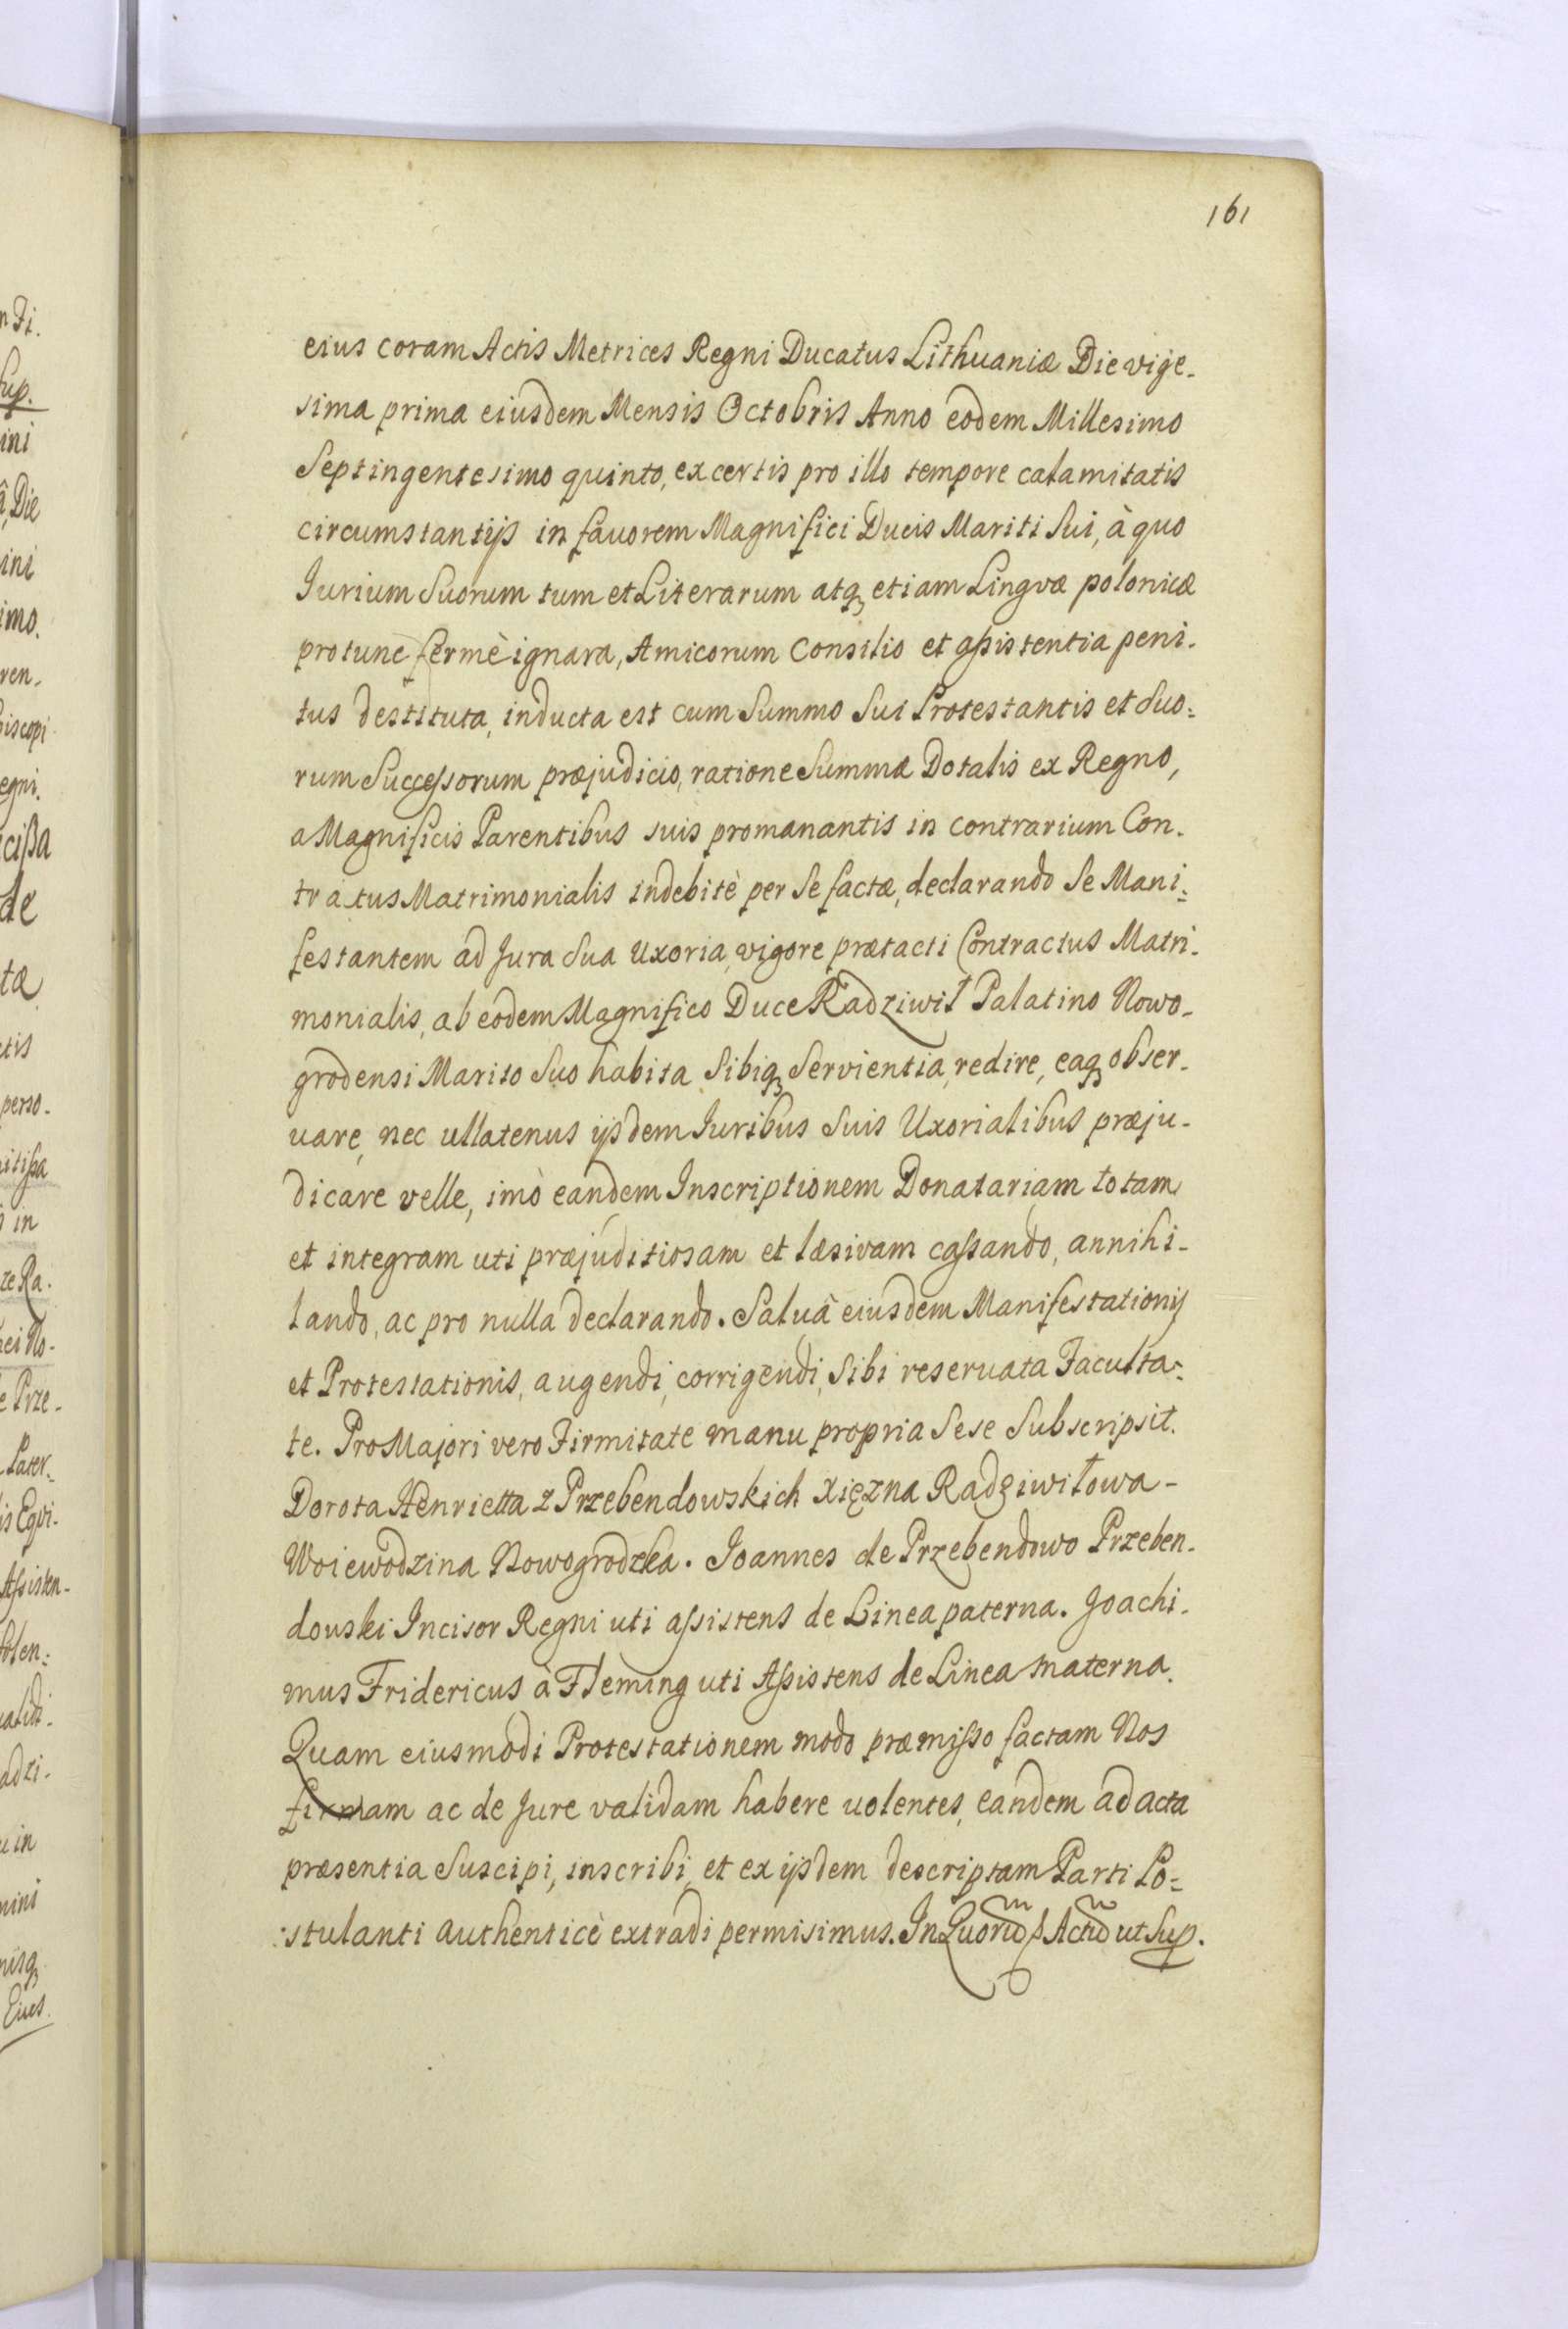 161
eius coram Actis Metrices Regni Ducatus Lithuaniæ Die vige-
sima prima eiusdem Mensis Octobris Anno eodem Millesimo
Septingentesimo quinto, ex certis pro illo tempore calamitatis
circumstantijs in fauorem Magnifici Ducis Mariti Sui, à quo
Jurium Suorum tum et Literarum atq etiam Lingvæ polonicæ
protunc fermè ignara, Amicorum Consilio et assistentia peni-
tus destituta, inducta est cum Summo Sui Protestantis et Suo:
rum Successorum præjudicio, ratione Summæ Dotalis ex Regno,
a Magnificis Parentibus suis promanantis in contrarium Con-
tractus Matrimonialis indebitè per Se factæ, declarando Se Mani:
festantem ad Jura Sua Uxoria, vigore prætacti Contractus Matri-
monialis, ab eodem Magnifico Duce Radziwił Palatino Nowo-
grodensi Marito Suo habita Sibiq Servientia, redire, eaq obser-
uare, nec ullatenus ijsdem Juribus Suis Uxorialibus præju-
dicare velle, imò eandem Inscriptionem Donatariam totam
et integram uti præjuditiosam et læsivam cassando, annihi-
lando, ac pro nulla declarando. Saluâ eiusdem Manifestationis
et Protestationis, augendi, corrigendi, Sibi reseruata Faculta-
te. Pro Majori vero Firmitate manu propria Sese Subscripsit.
Dorota Henrietta z Przebendowskich Xięzna Radziwiłowa -
Woiewodzina Nowogrodzka. Joannes de Przebendowo Przeben-
douski Incisor Regni uti assistens de Linea paterna. Joachi-
mus Fridericus à Fleming uti Assistens de Linea materna.
Quam eiusmodi Protestationem modo præmisso factam Nos
firmam ac de Jure validam habere uolentes, eandem ad acta
præsentia Suscipi, inscribi, et ex ijsdem descriptam Parti Po:
:stulanti authenticè extradi permisimus. In Quorū Actū ut Sup.